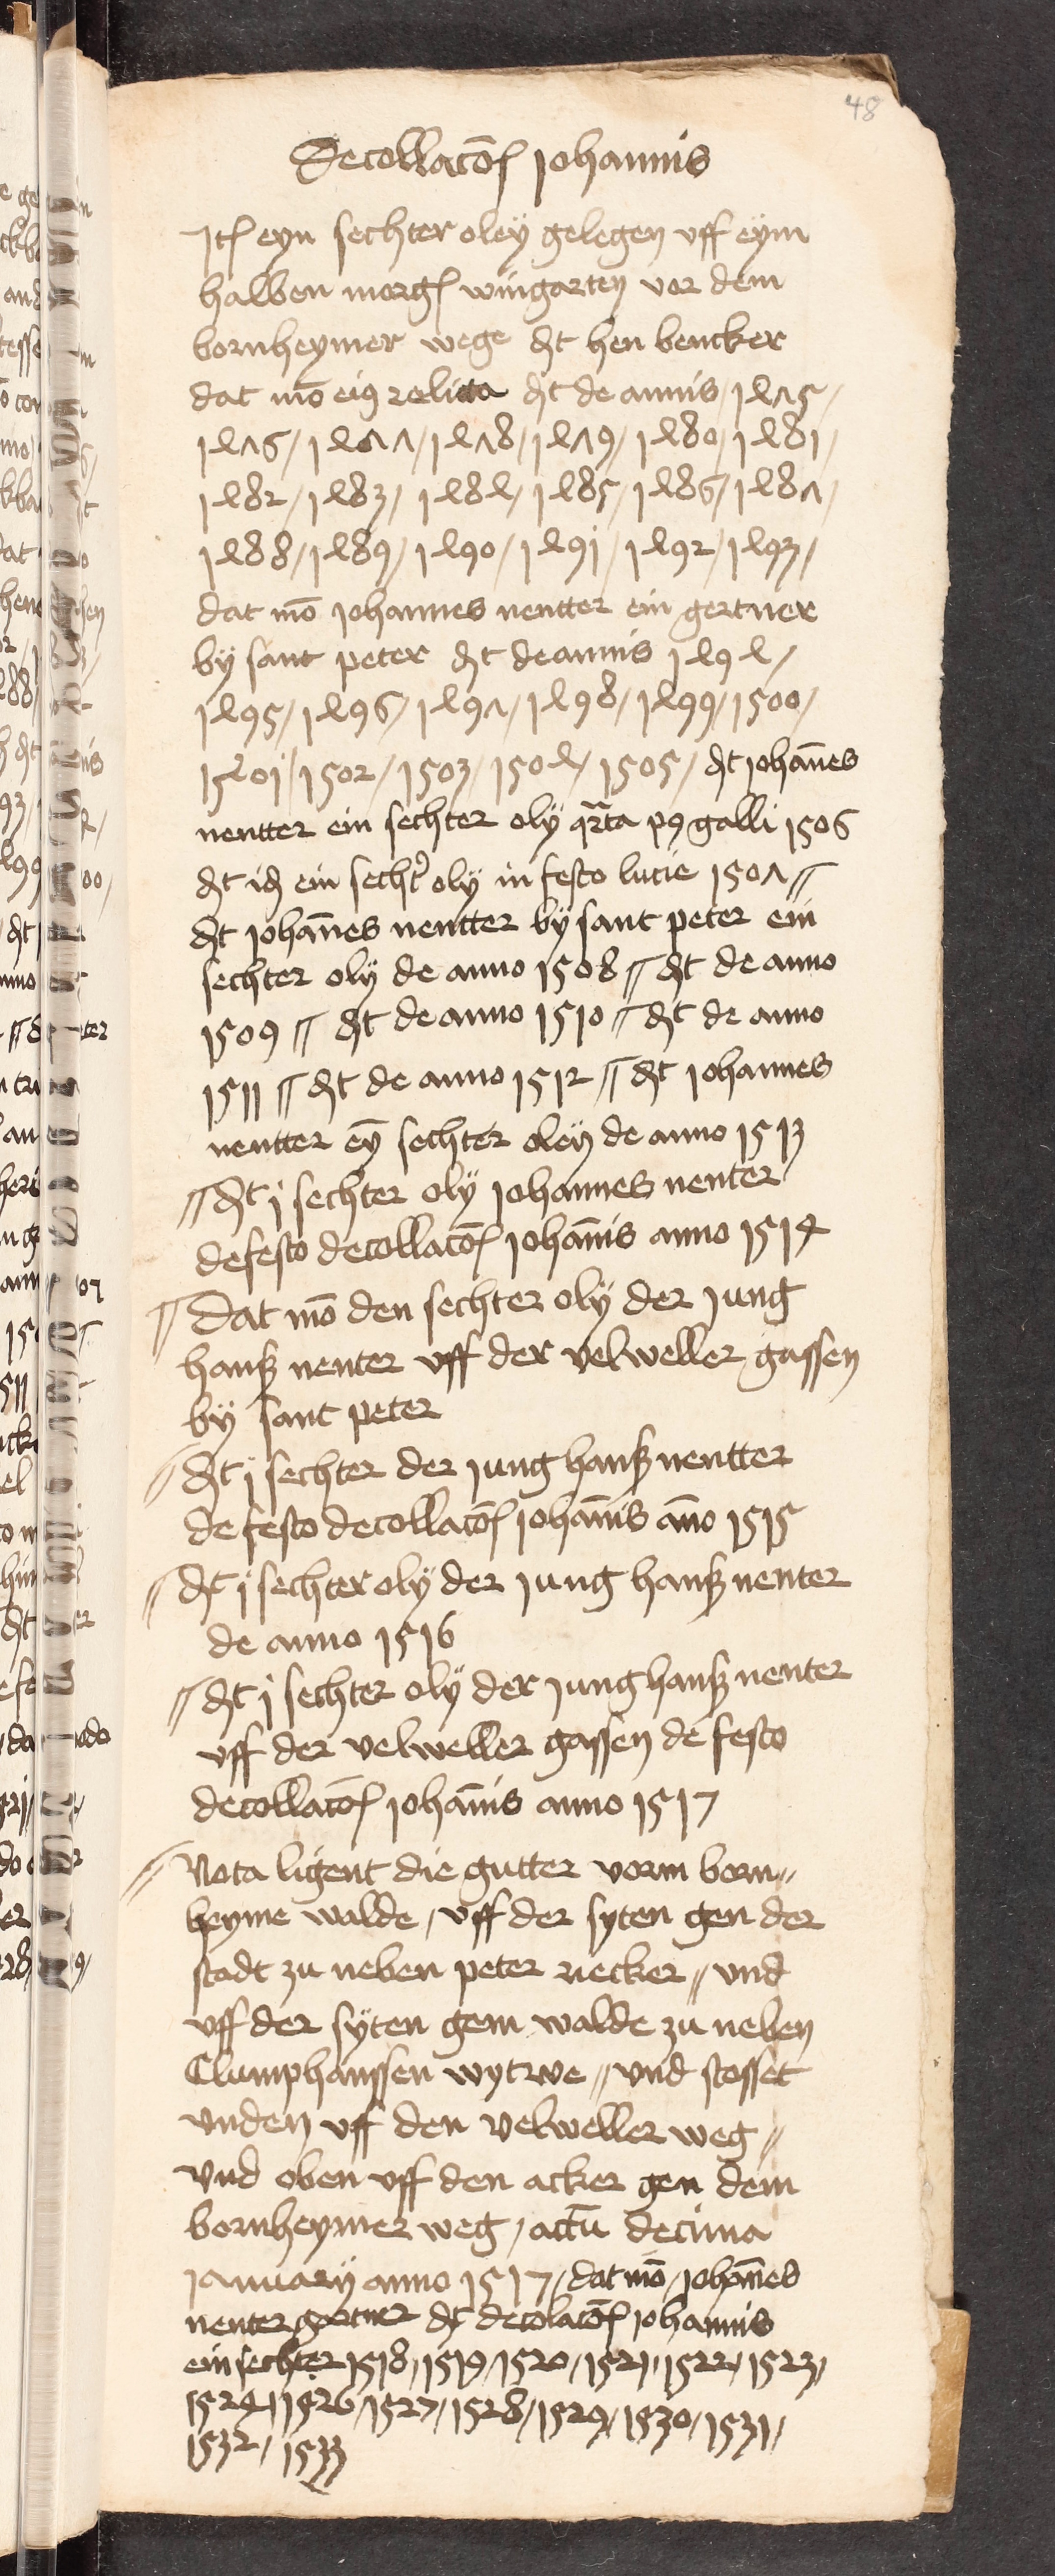 48
Decollacōs johannis
Itē eyn sechter oley gelegen vff eym
halben morgē wingarten vor dem
bornheymer wege dt hen bencker
dat mō eius relicta dt de annis 1475/
1476/ 1477/ 1478/ 1479/ 1480/ 1481/
1482/ 1483/ 1484/ 1485/ 1486/ 1487/
1488/ 1489/ 1490/ 1491/ 1492/ 1493/
dat mō johannes nentter ein gertner
by sant peter dt de annis 1494/
1495/ 1496/ 1497/ 1498/ 1499/ 1500/
1501/ 1502/ 1503/ 1504/ 1505/ dt johānes
nentter ein sechter oly qrta p9 galli 1506
dt id ein secht oly in festo lucie 1507//
dt johānes nentter by sant peter ein
sechter oly de anno 1508 // dt de anno
1509 // dt de anno 1510 // dt de anno
1511 // dt de anno 1512 // dt johannes
nentter eȳ sechter oley de anno 1513
// dt j sechter oly johannes nenter
de festo decollacōs johānis anno 1514
// Dat mō den sechter oly der jung
hanß nenter vff der velweller gassen
by sant peter
/ dt j sechter der jung hanß nentter
de festo decollacōs johānis āno 1515
// dt j sechter oly der jung hanß nenter
de anno 1516
// dt j sechter oly der jung hanß nenter
vff der velweller gassen de festo
decollacōs johānis anno 1517
// Nota ligent die gutter vorm born//
heyme walde / vff der syten gen der
stadt zu neben peter necker // vnd
vff der syten gem walde zu neben
Clumphanssen wytwe // vnd stosset
vnden vff den velweller weg //
vnd oben vff den acker gen dem
bornheymer weg / actū decima
january anno 1517 / dat mō johānes
nenter gertner dt decolacōs johannis
ein sechter 1518/ 1519/ 1520/ 1521/ 1522/ 1523/
1524/ 1526/ 1527/ 1528/ 1529/ 1530/ 1531/
1532/ 1533